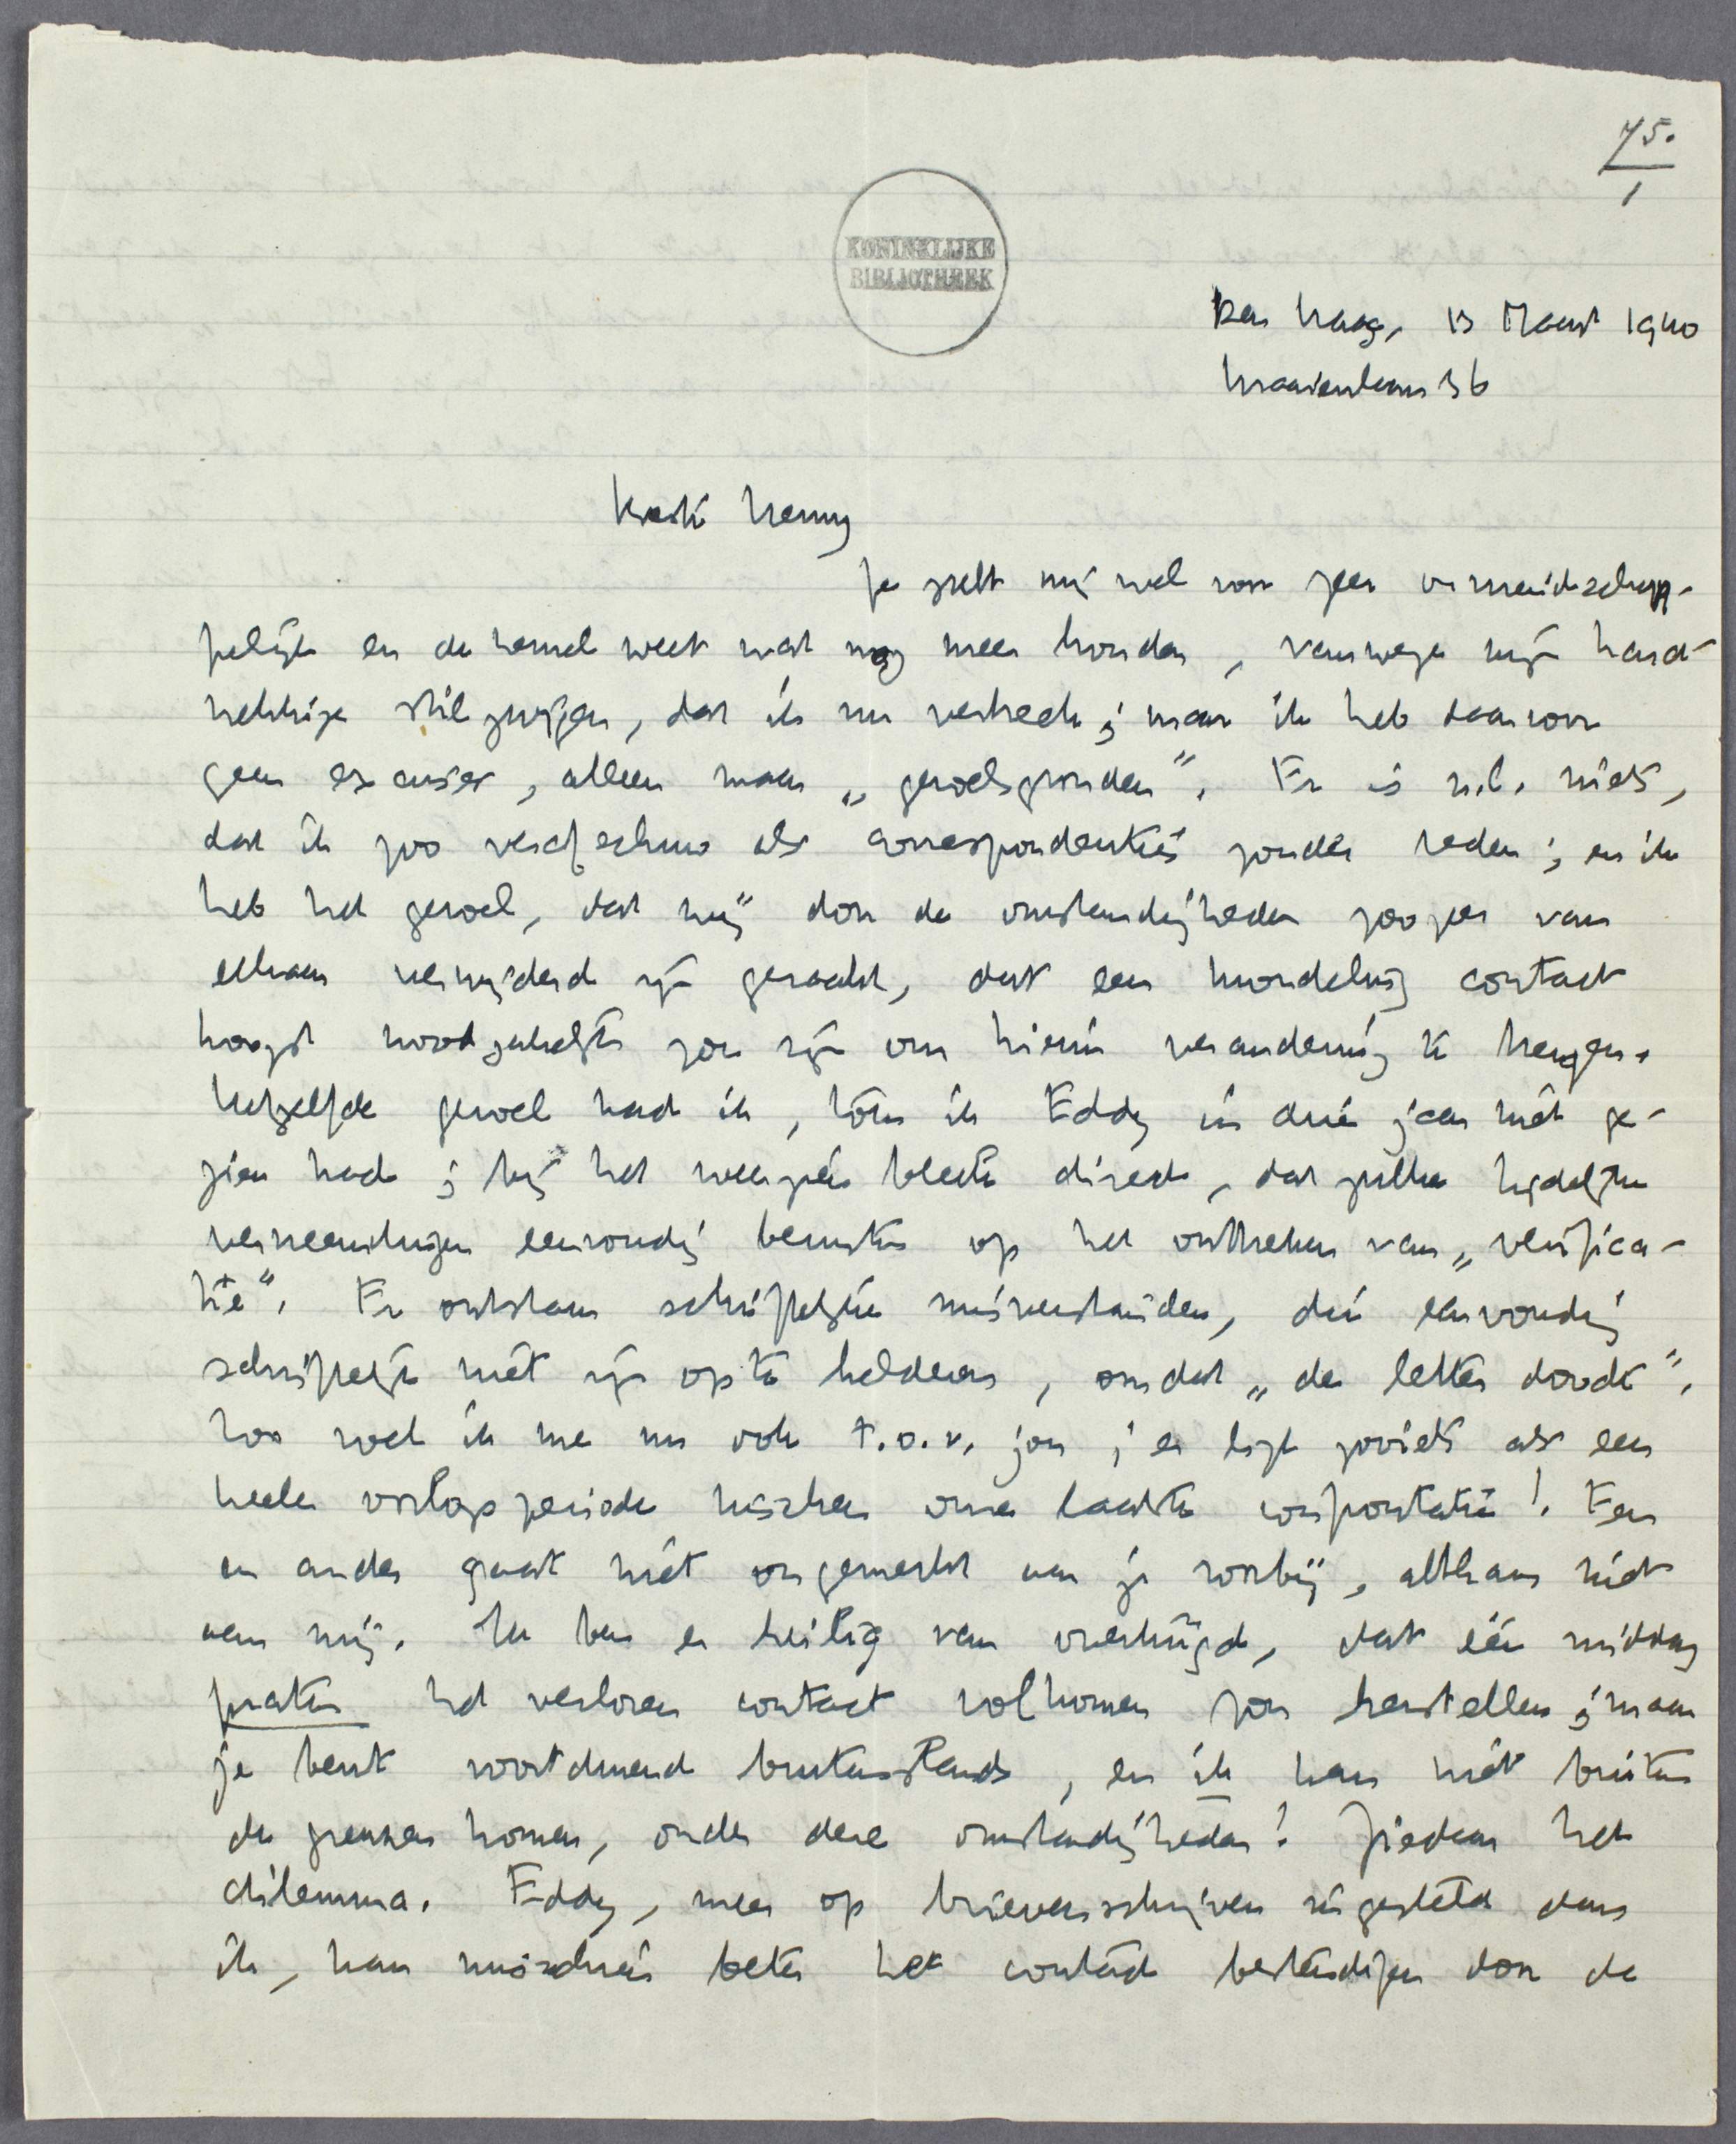 75.
1
KONINKLIJKE
BIBLIOTHEEK
Den Haag, 13 Maart 1940
Kraaienlaan 36
Beste Henny
Je zult mij wel voor zeer onvriendschap-
pelijk en de hemel weet wat nog meer houden, vanwege mijn hard-
nekkige stilzwijgen, dat ik nu verbreek; maar ik heb daarvoor
geen excuses, alleen maar „gevoelsgronden”. Er is n.l. niets,
dat ik zoo verafschuw als correspondentie zonder reden; en ik
heb het gevoel, dat wij door de omstandigheden zoozeer van
elkaar verwijderd zijn geraakt, dat een mondeling contact
hoogst noodzakelijk zou zijn om hierin verandering te brengen.
Hetzelfde gevoel had ik, toen ik Eddy in drie jaar niet ge-
zien had; bij het weerzien bleek direct, dat zulke tijdelijke
verreemdingen eenvoudig berusten op het ontbreken van „verifica-
tie”. Er ontstaan schriftelijke misverstanden, die eenvoudig
schriftelijk niet zijn op te helderen, omdat „de letter doodt”.
Zoo voel ik me nu ook t.o.v. jou; er ligt zooiets als een
heele oorlogsperiode tusschen onze laatste confrontatie! Een
en ander gaat niet ongemerkt aan je voorbij, althans niet
aan mij. Ik ben er heilig van overtuigd, dat één middag
praten het verloren contact volkomen zou herstellen; maar
je bent voortdurend buitenslands, en ik kan niet buiten
de grenzen komen, onder deze omstandigheden! Ziedaar het
dilemma. Eddy, meer op brievenschrijven ingesteld dan
ik, kan misschien beter het contact bestendigen door de